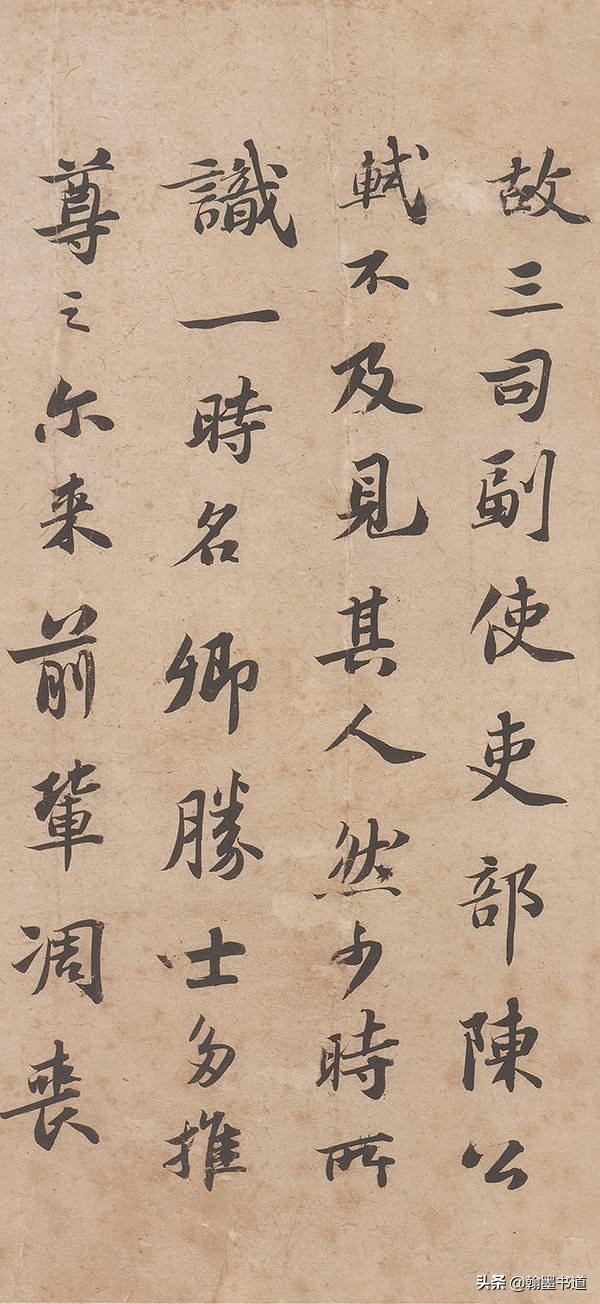 故三司副使吏部陳公
軾不及見其人然少時所
識一時名卿勝士多推
尊之尔来前輩凋喪
头条 @翰墨书道